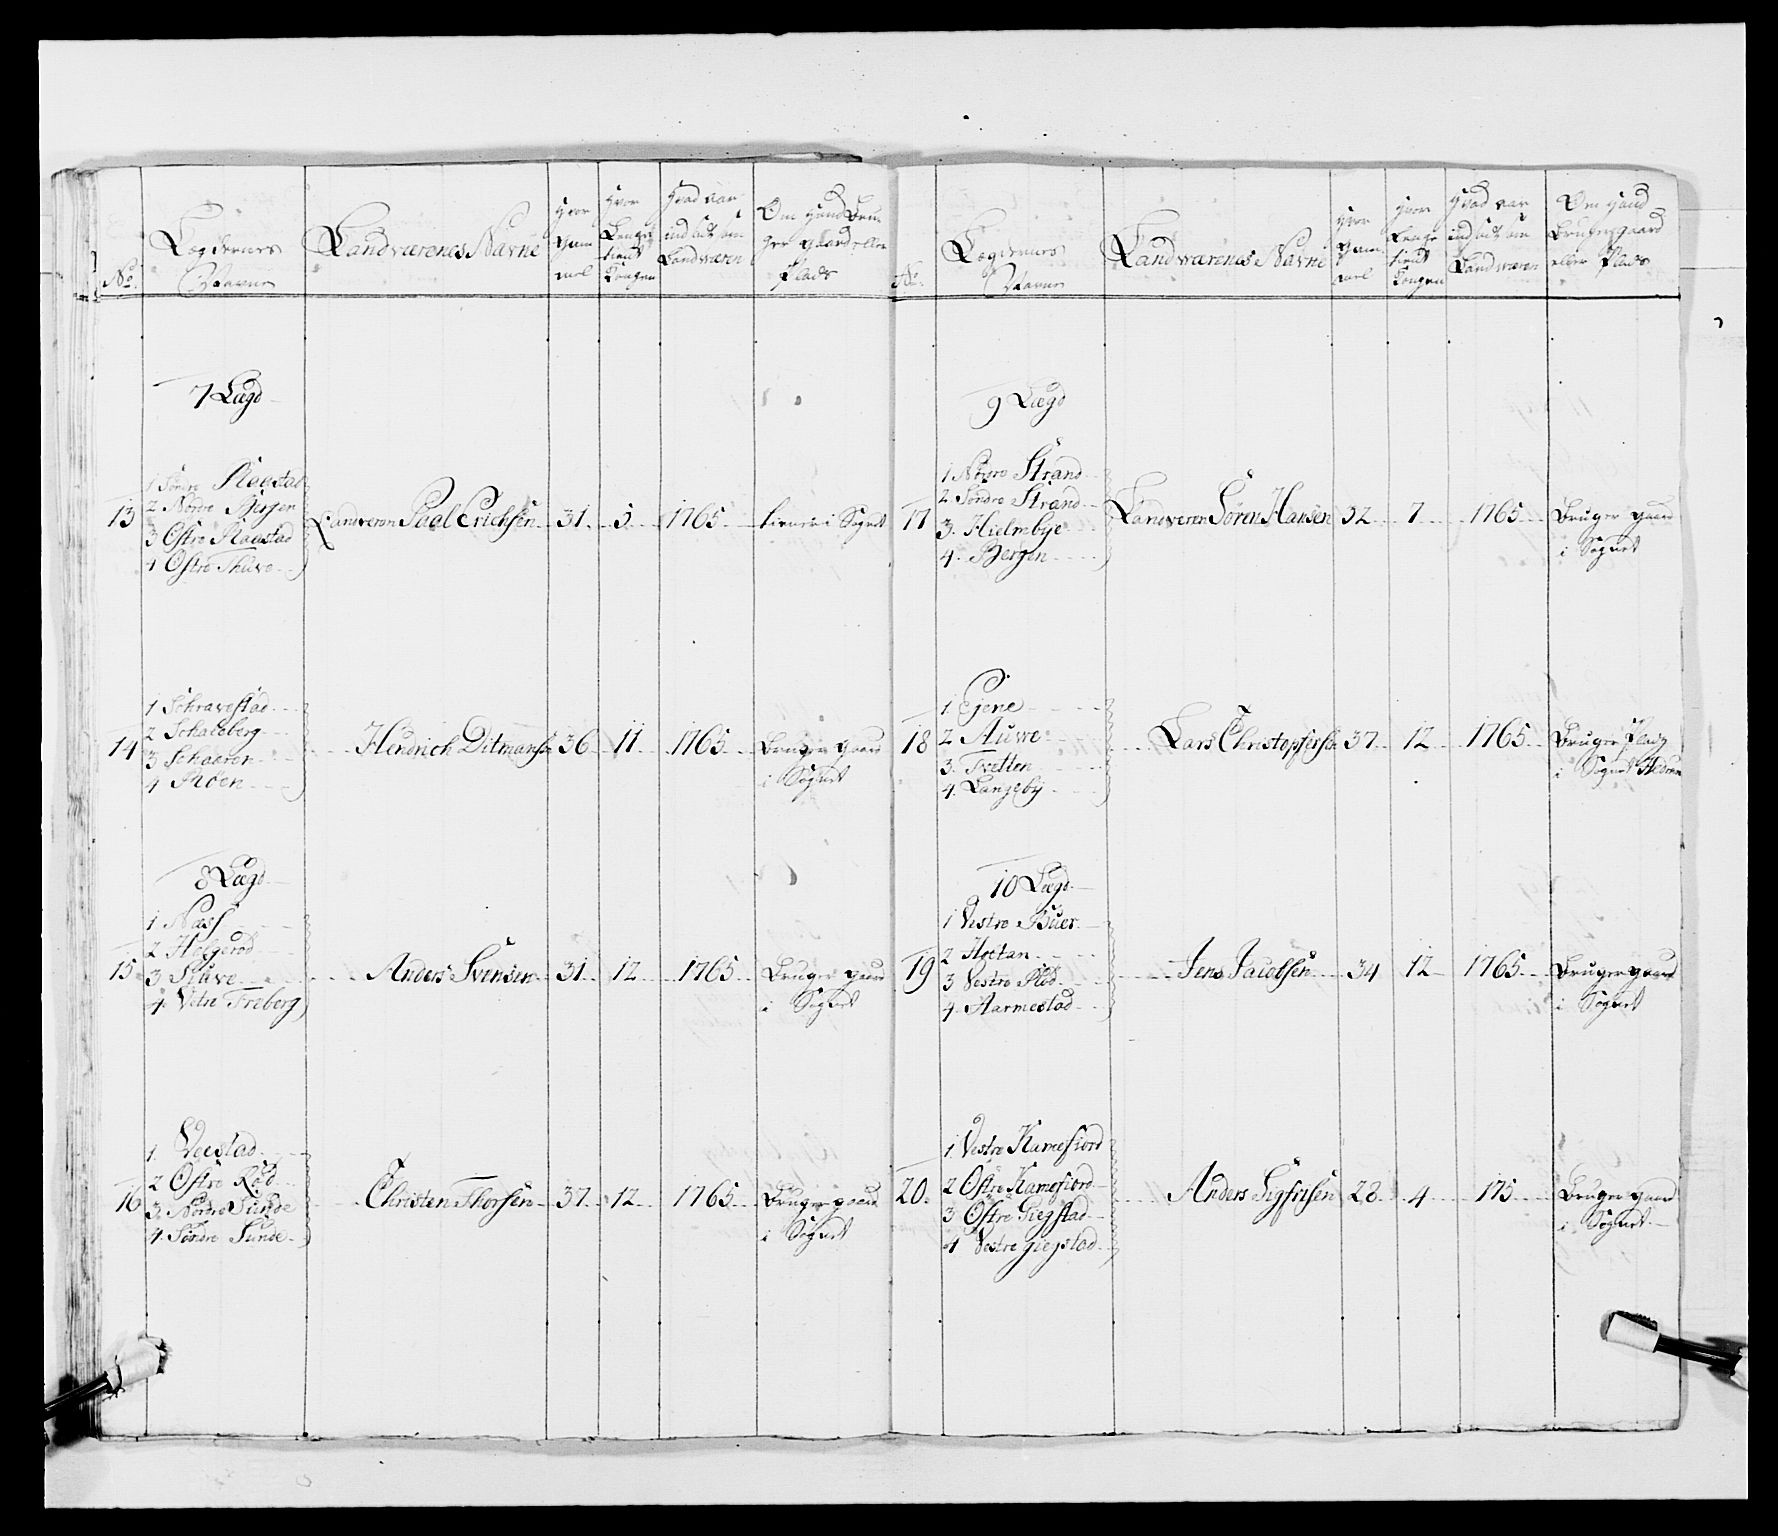 No.
Lægdernes
Navne
Landværenes Navne
Hvor
gam
mel
Hvor
Lenge
tient
Kongen
Hvad aar
indsat som
Landværen
Om hand Bru
ger gaard eller
Plads
7 Lægd
13
1 Söndre Raastad
2 Nordre Bergen
3 Östre Raastad
4 Östre Thuve
Landveren Paal Erichsen 31. 5. 1765. tiener i Sognet
14
1 Schravestad
2 Schaleberg
3 Schaaron
4 Moen
Hendrich Ditmansen 36. 11. 1765. Bruger gaard
i Sognet
8 Lægd
15
1 Næss
2 Holgerod
3 Stuve
4. Vitre Freberg
Anders Svensen 31. 12. 1765. Bruger gaard
i Sognet
16
1. Veestad
2 Östre Röd
3. Nordre Sunde
4. Söndre Sunde
Christen Thorsen 37. 12. 1765. Bruger gaard
i Sognet
No.
Lægdernes
Navne
Landværenes Navne
Hvor
gam
mel
Hvor
Lenge
tient
Kongen
Hvad aar
indsat som
Landværen
Om hand
Bruger gaard
eller Plads
9 Lægd
17
1 Nordre Strand
2. Söndre Strand
3. Hielmbye
4. Bergen
Landveren Sören Hansen 32 7 1765 Bruger gaard
i Sognet
18
1. Gjene
2 Auwe
3. Tvetten
4. Langeby
Lars Christophersen 37. 12 1765. Bruger Plads
i Sognet
10 Lægd
19
1 Vestre Buer
2 Hoctan
3 Vestre Röd
4. Harmestad
Jens Jacobsen 34 12 1765. Bruger gaard
i Sognet
20.
1. Vestre Kamefiord
2 Östre Kamefiord
3 Östre Giegstad
4 Vestre giegstad
Anders Sigfrisen 28. 4 175 Bruger gaard
i Sognet